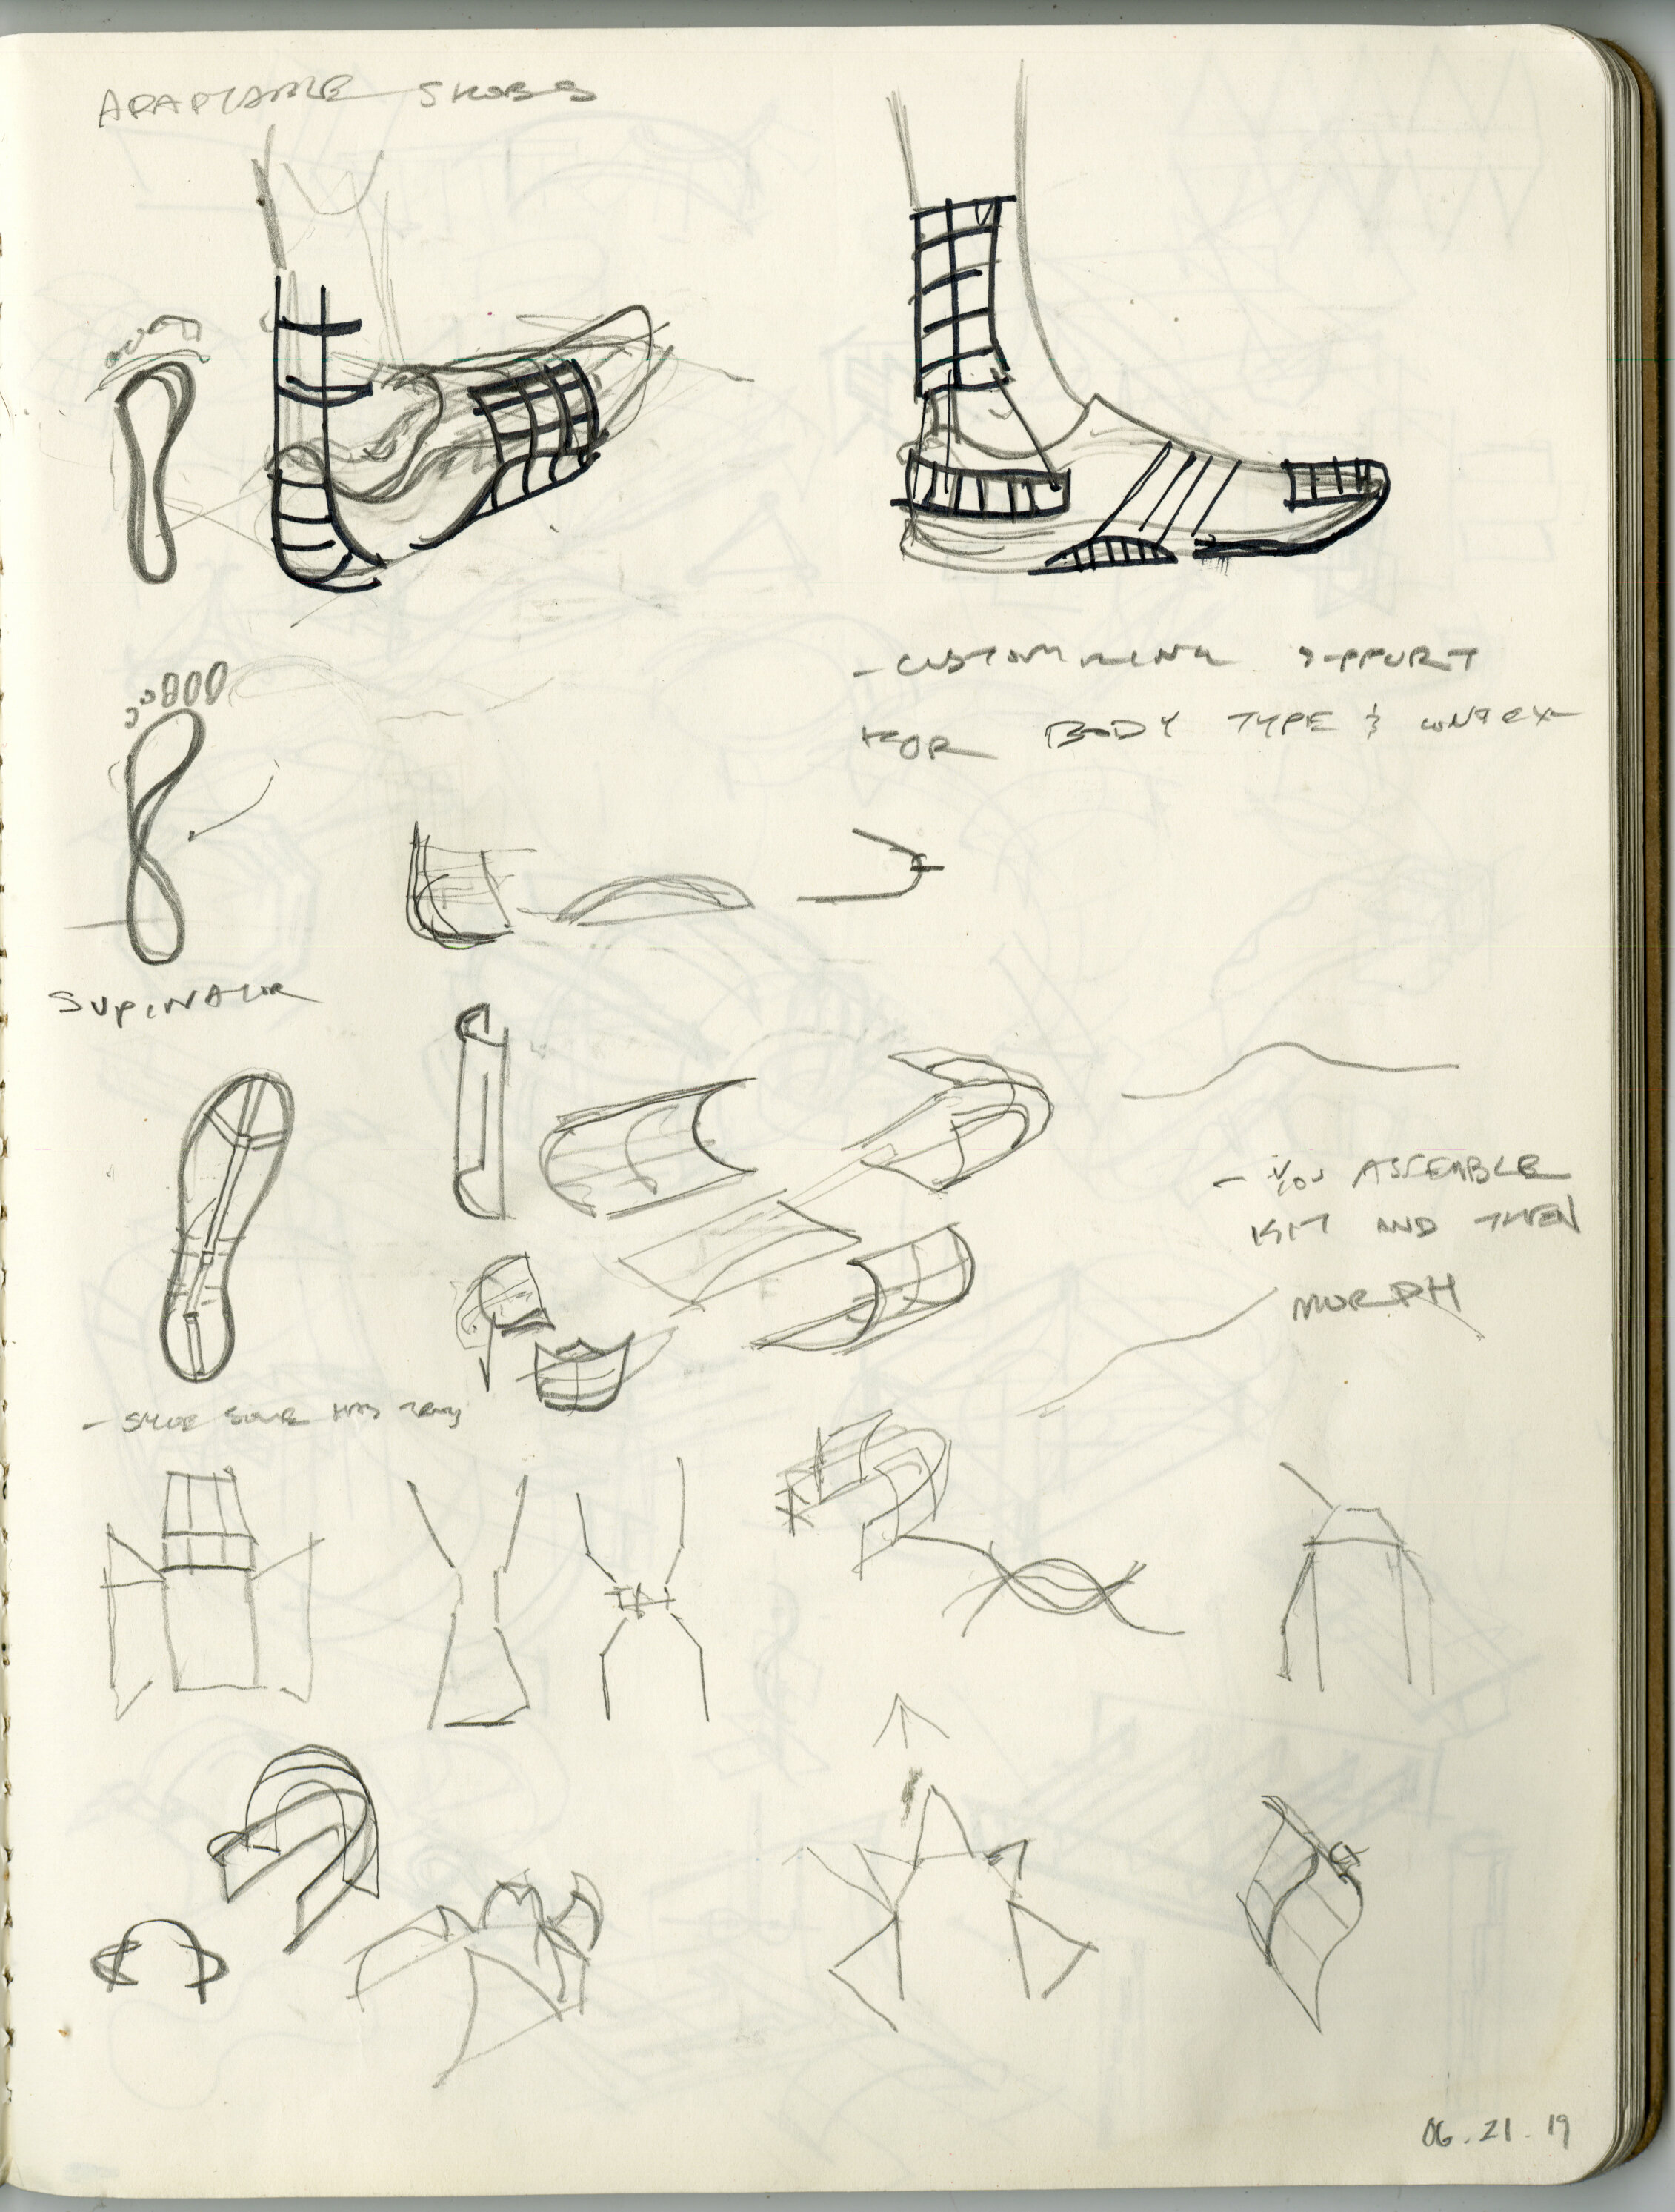 ADAPTABLE SHOES
- CUSTOMIZING SUPPORT
FOR BODY TYPE & CONTEXT
SUPINATOR
- YOU ASSEMBLE
KIT AND THEN
MORPH
- SHOE SOLE HAS
06.21.19